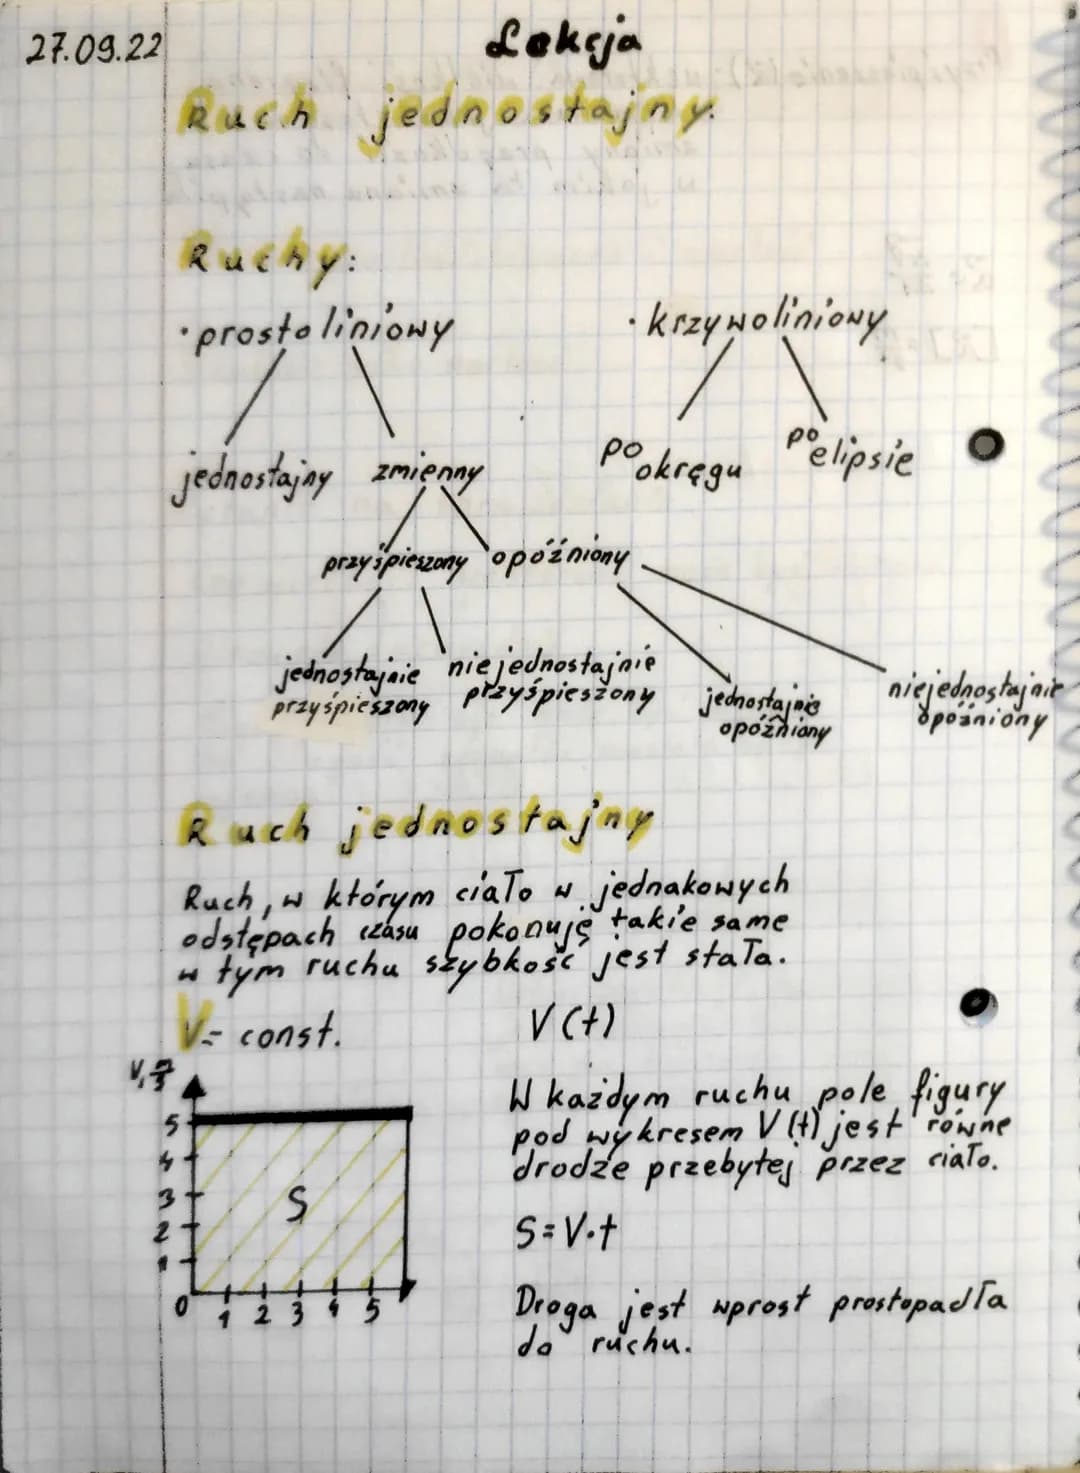 27.09.22
Lekcja
Ruch jednostajny.
Ruchy:
· prostoliniowy
· krzywoliniowy
jednostajny zmienny
po okręgu
po elipsie
przyśpieszony opóźniony
jednostajnie
przyśpieszony
niejednostajnie
przyśpieszony
jednostajnie
opóźniony
niejednostajnie
opóźniony
Ruch jednostajny
Ruch, w którym ciało w jednakowych
odstępach czasu pokonuję takie same
w tym ruchu szybkość jest stała.
V= const.
V(t)
V, m/s
5
4
3
2
1
0 1 2 3 4 5
S
W każdym ruchu pole figury
pod wykresem V(t) jest równe
drodze przebytej przez ciało.
S=V·t
Droga jest wprost prostopadła
do ruchu.